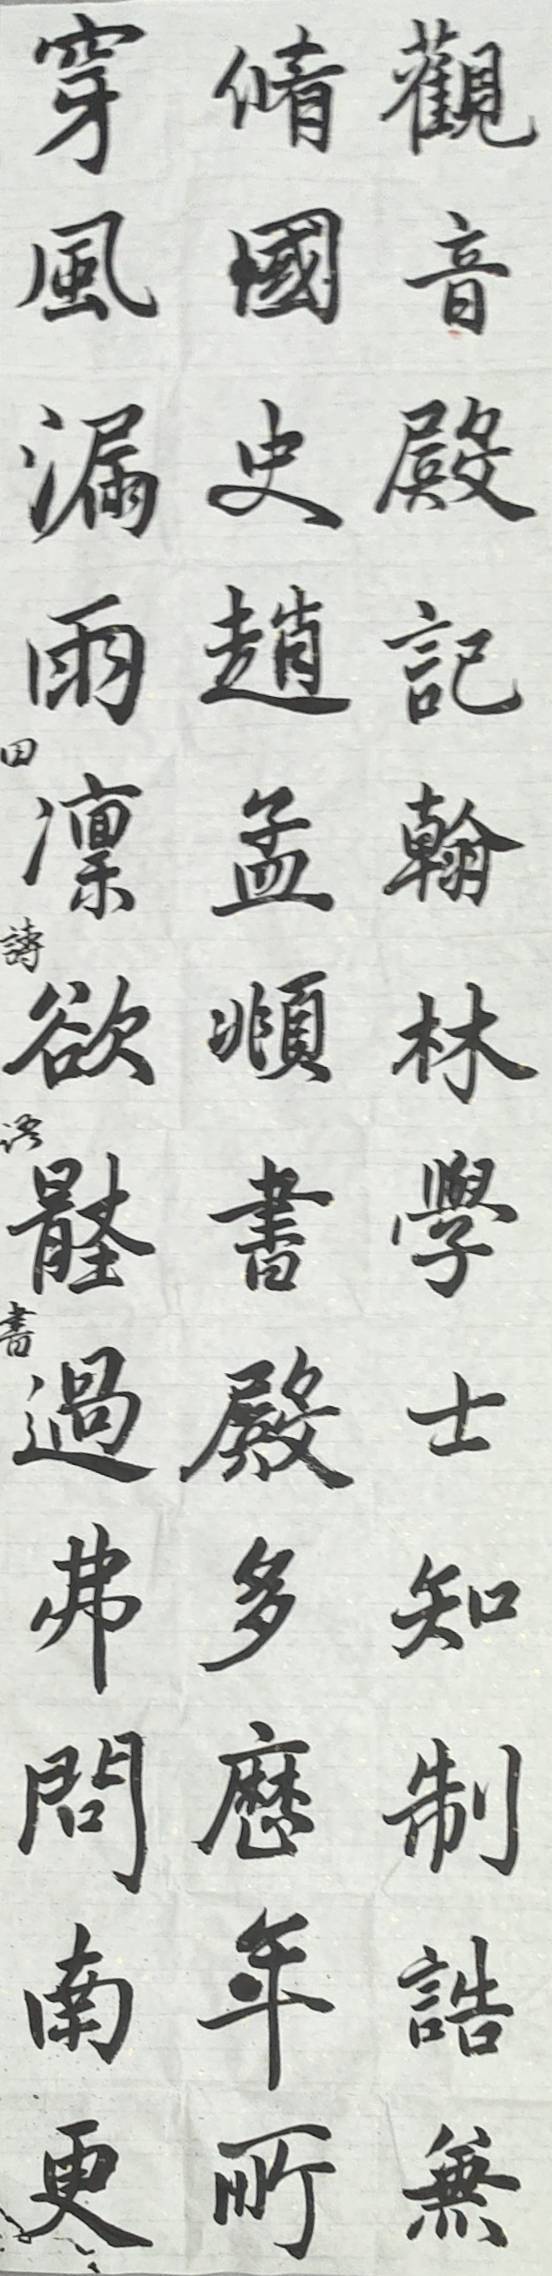 觀音殿記翰林學士知制誥兼
脩國史趙孟頫書殿多歷年所
穿風漏雨凜欲壓過弗問南更
田 詩 語 書